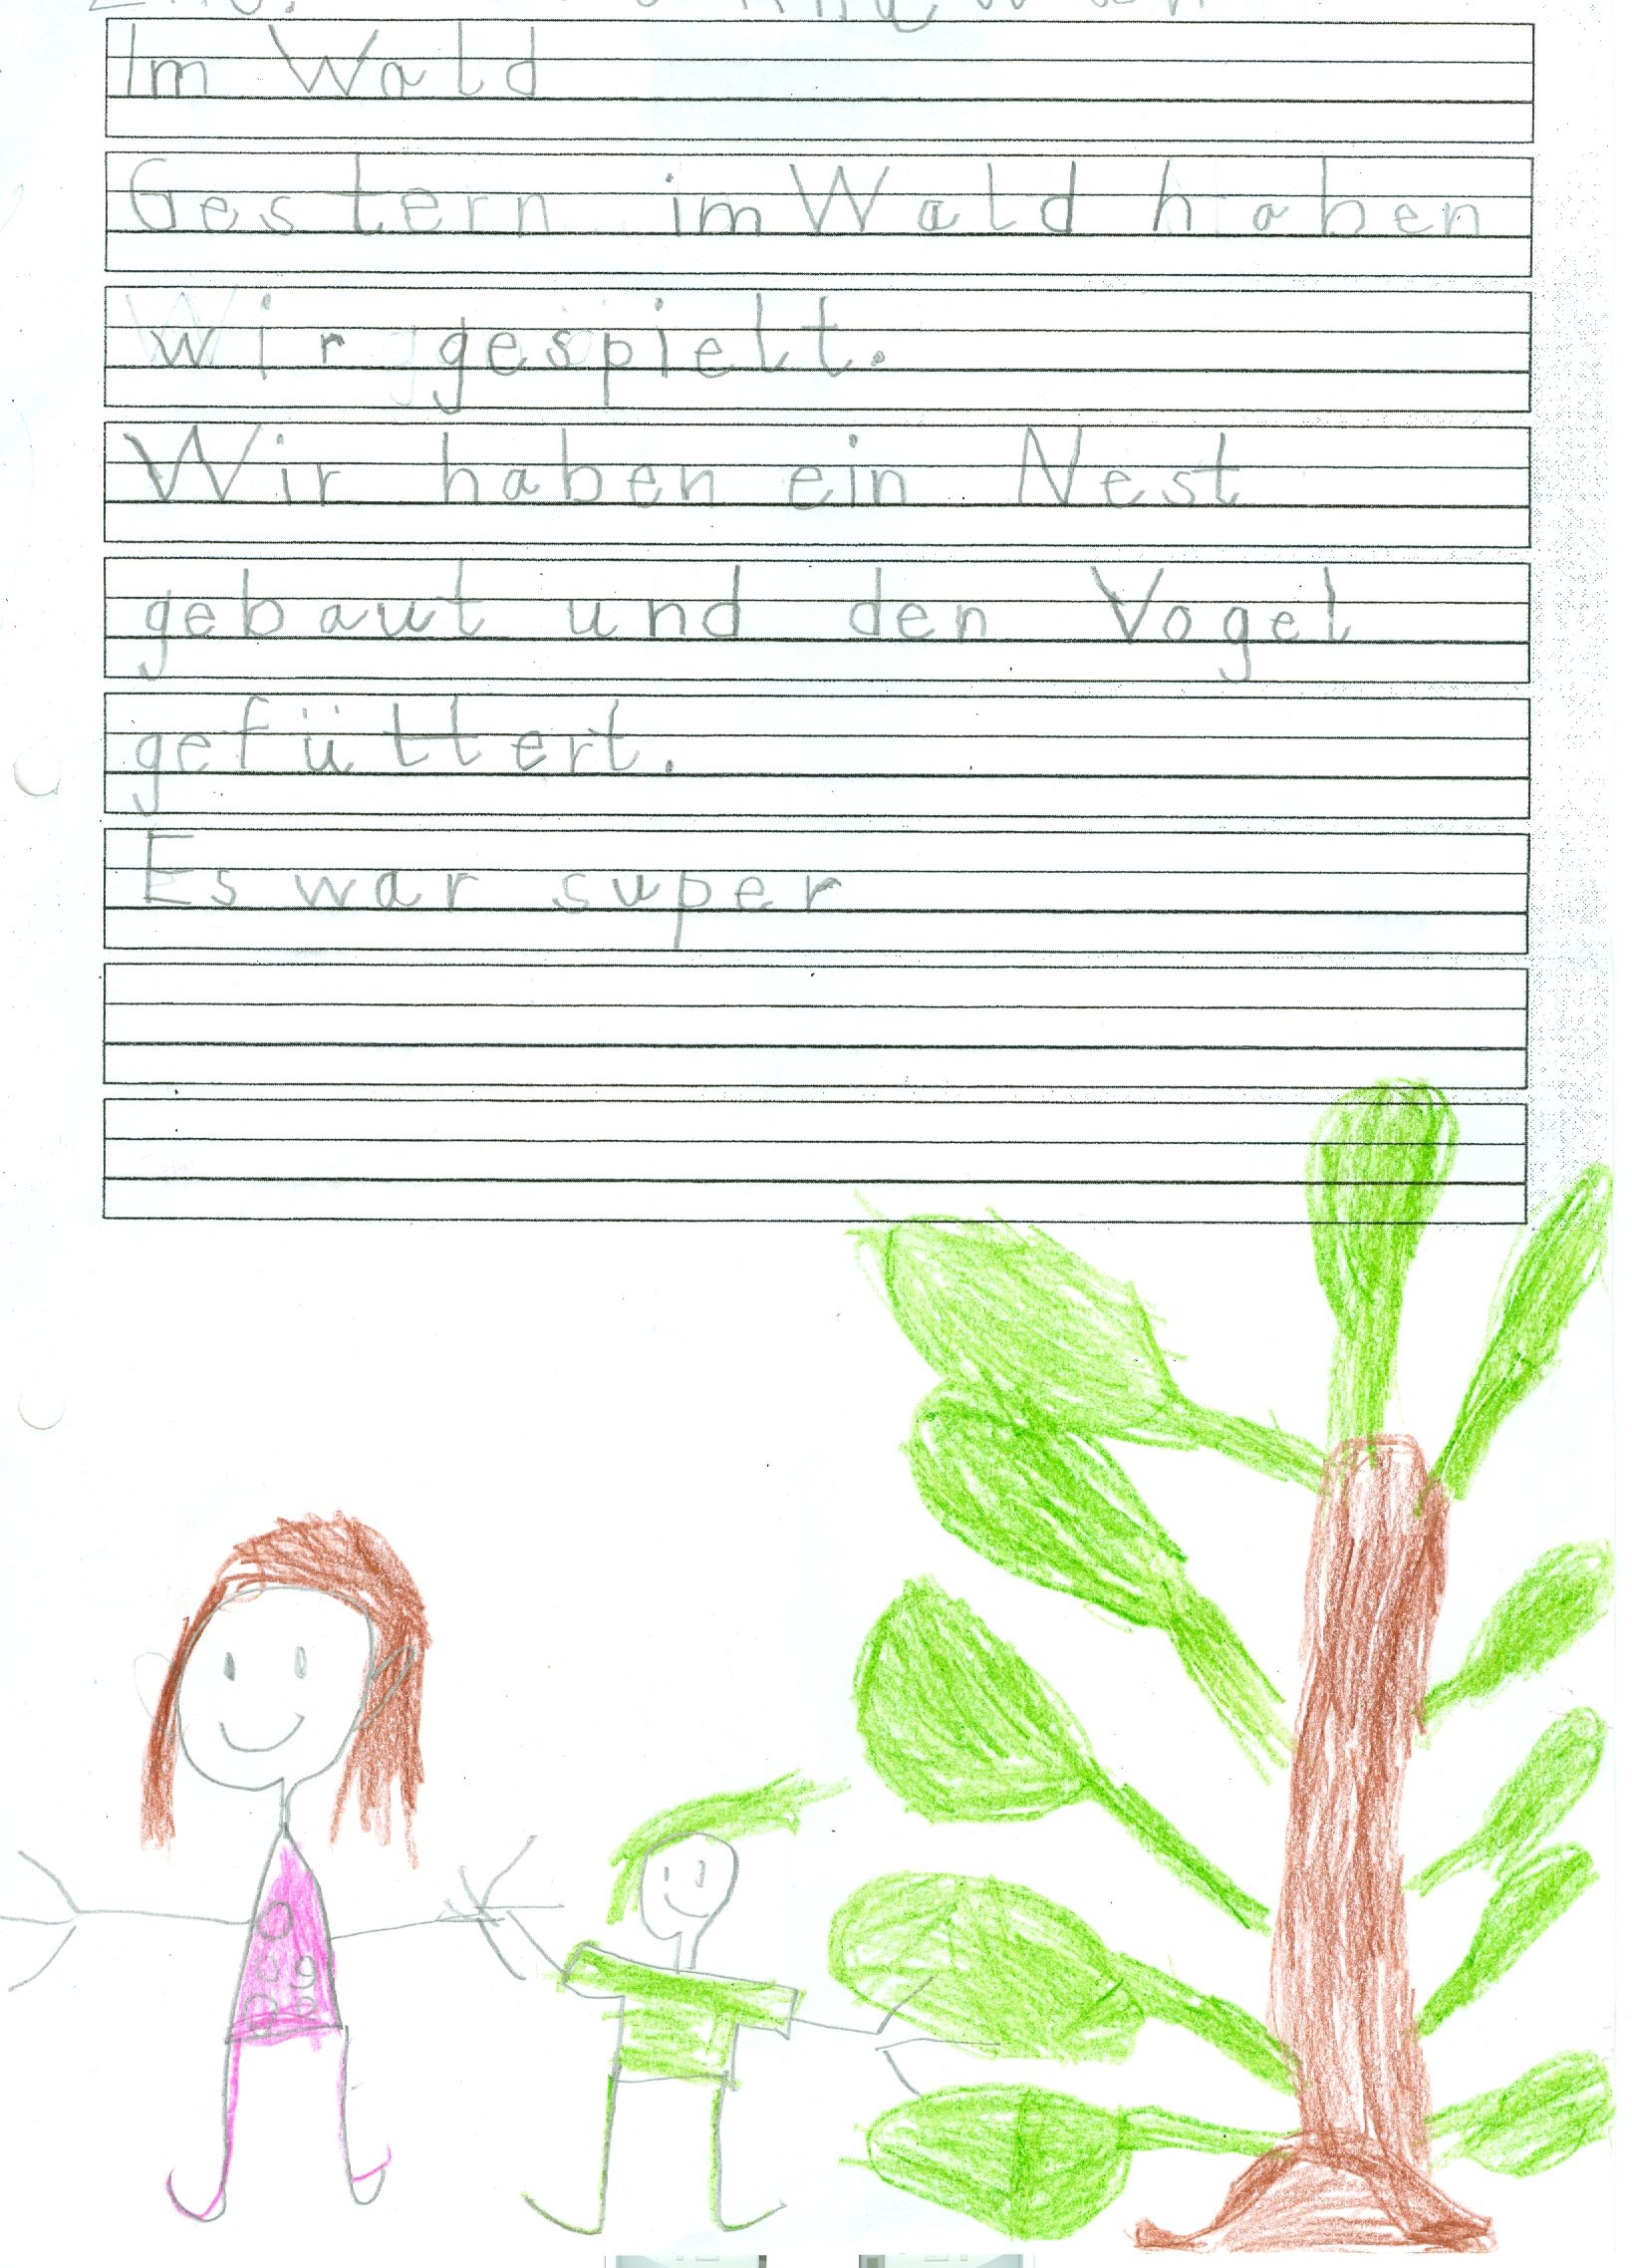 Im Wald
Gestern im Wald haben
wir gespielt.
Wir haben ein Nest
gebaut und den Vogel
gefüttert.
Es war super